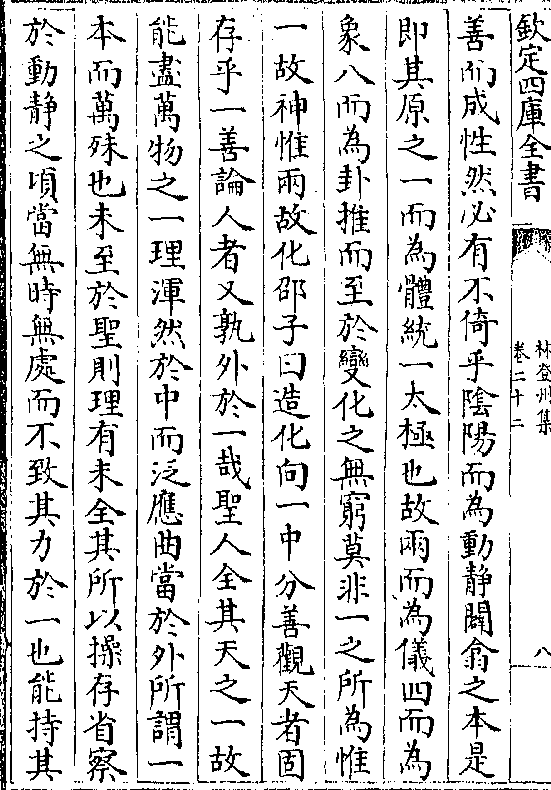 欽定四庫全書
林登州集
卷二十二
八
善而成性然必有不倚乎陰陽而為動静闔翕之本是
即其原之一而為體統一太極也故兩而為儀四而為
象八而為卦推而至於變化之無窮莫非一之所為惟
一故神惟兩故化邵子曰造化向一中分善觀天者固
存乎一善論人者又孰外於一哉聖人全其天之一故
能盡萬物之一理渾然於中而泛應曲當於外所謂一
本而萬殊也未至於聖則理有未全其所以操存省察
於動静之頃當無時無處而不致其力於一也能持其